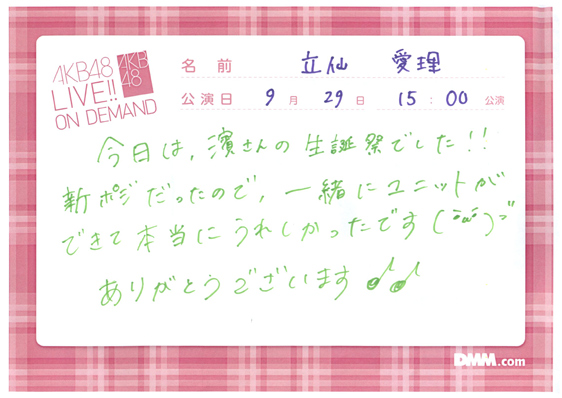 AKB48
LIVE!!
ON DEMAND
AKB
48
名前 立仙 愛理
公演日 9月 29日 15:00 公演
今日は、濱さんの生誕祭でした!!
新ポジだったので、一緒にユニットが
できて本当にうれしかったです(・ω・)
ありがとうございます♪♪
DMM.com